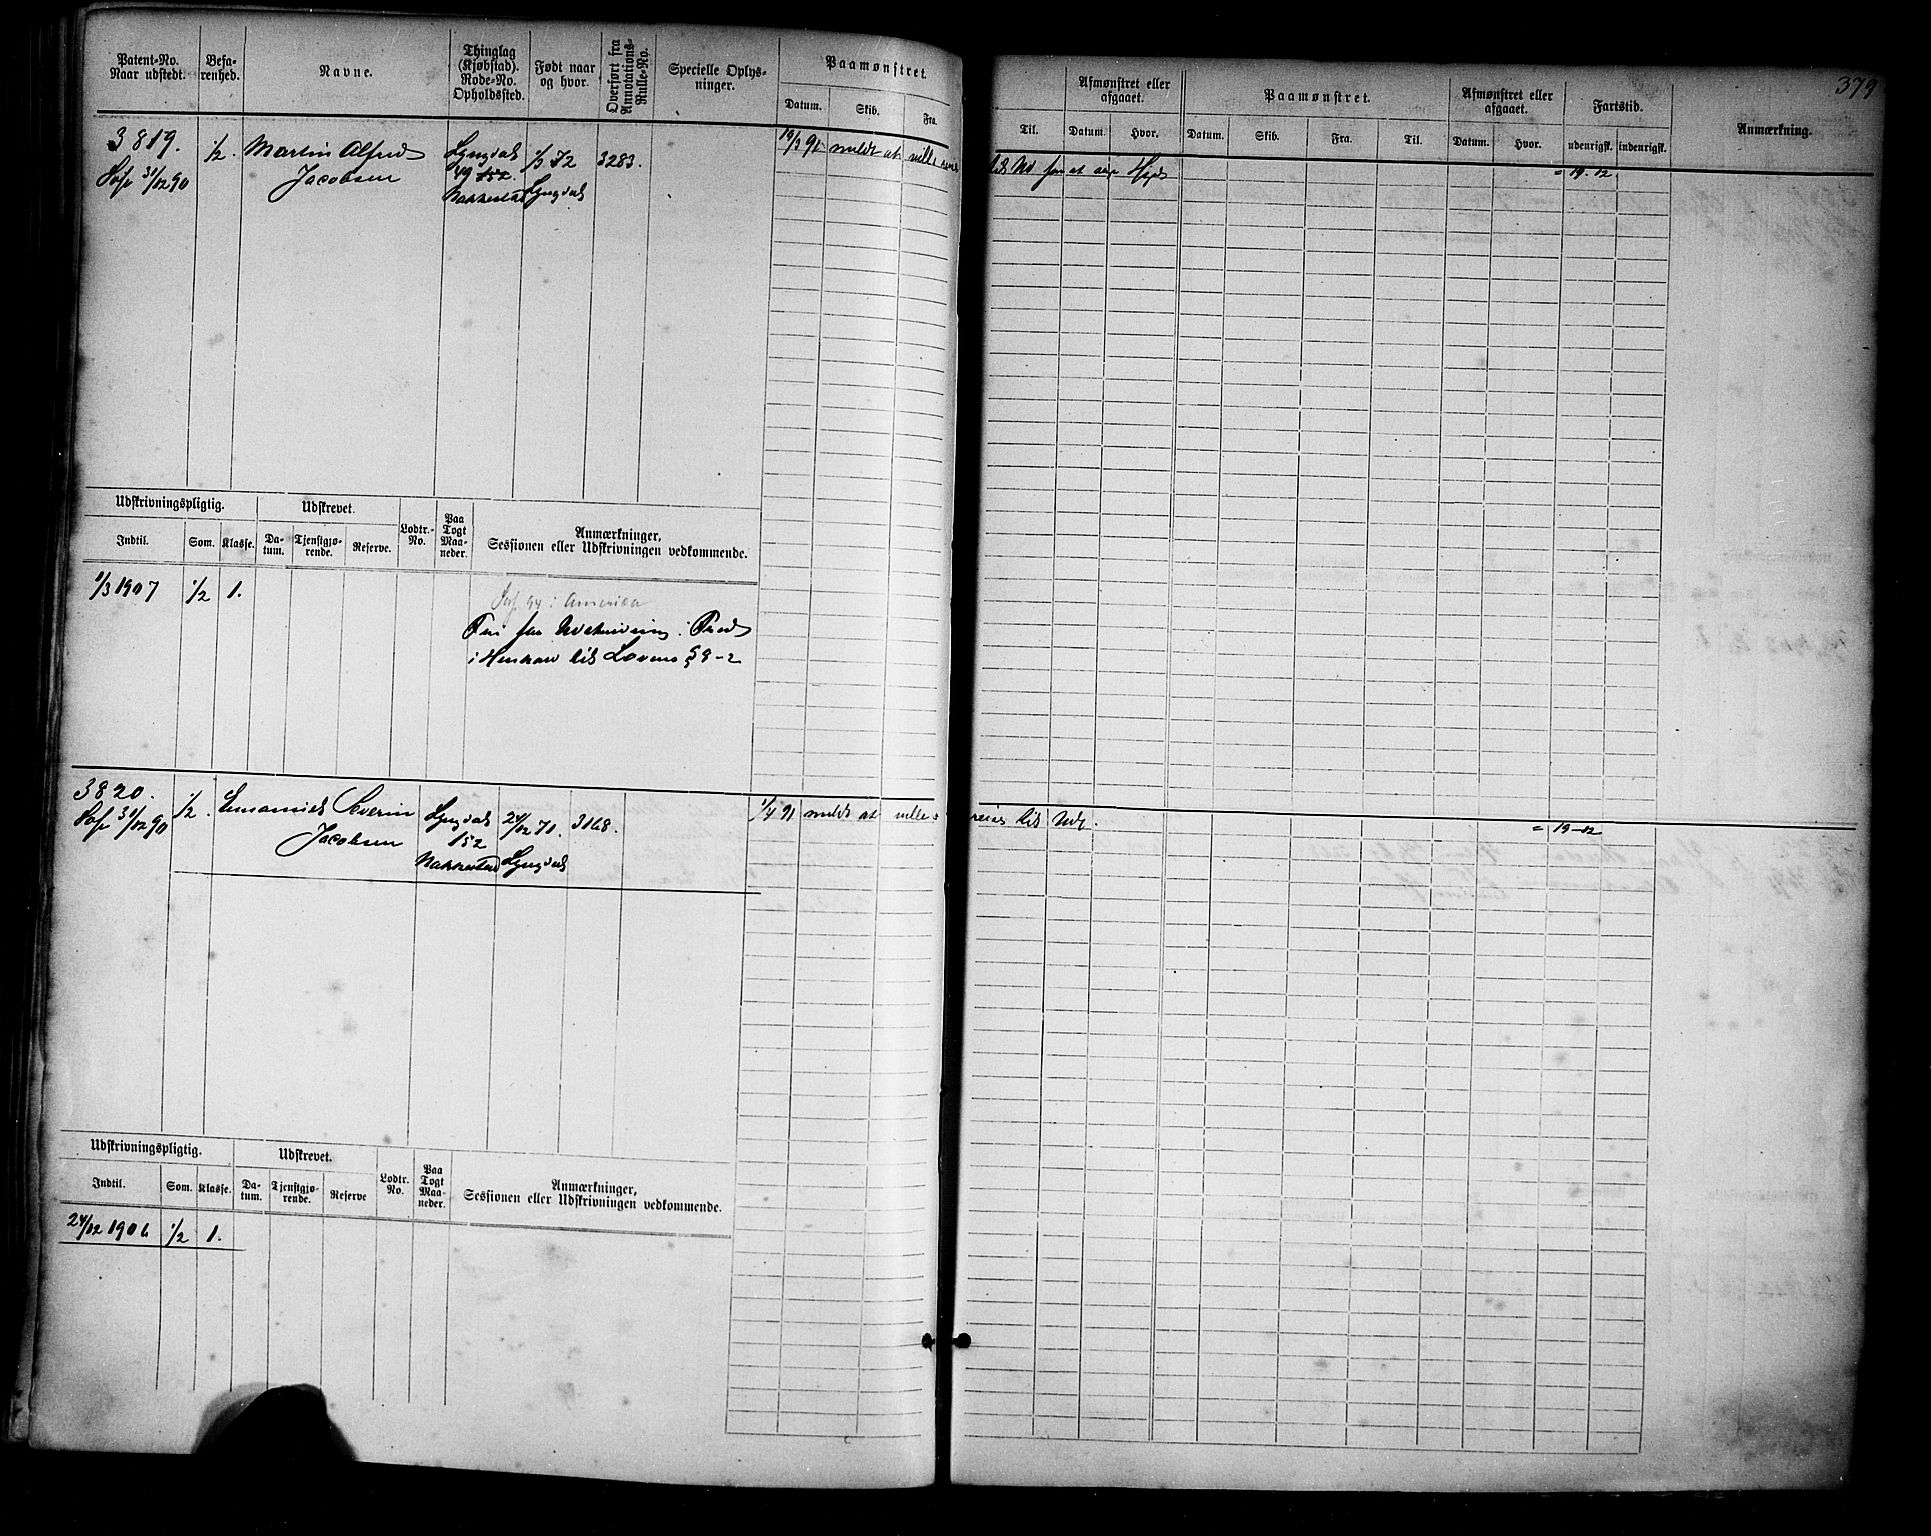 379
Patent-No. Naar udstedt.
Befarenhed.
Navne.
Thinglag (Kjøbstad). Rode-No. Opholdssted.
Født naar og hvor.
Overført fra Annotations-Rulle-No.
Specielle Oplysninger.
Paamønstret.
Datum. Skib. Fra. Til.
Afmønstret eller afgaaet.
Datum. Hvor.
Paamønstret.
Datum. Skib. Fra. Til.
Afmønstret eller afgaaet.
Datum. Hvor.
Fartstid.
udenrigsk. indenrigsk.
Anmærkning.
3819. 1/2. Martin Alfred Lyngdal 1/3 72 3283. 19/3 91 meldt at ville reise til Ud for at
31/12 90 Jacobsen 49 152. Lyngdal = 19-12.
Nakkestad
Udskrivningspligtig. Udskrevet. Lodtr.-No. Paa Togt Maaneder. Anmærkninger, Sessionen eller Udskrivningen vedkommende.
Indtil. Som. Klasse. Datum. Tjenstgjørende. Reserve.
1/3 1907 1/2 1.
94 i Amerika
Fri for Udskrivning i Fred
i Henhold til Lovens § 9-2
3820. 1/2. Emanuel Severin Lyngdal 24/12 71. 3168. 1/4 91 meldt at ville reise til Udl. = 19-12
31/12 90 Jacobsen 152
Nakkestad Lyngdal
Udskrivningspligtig. Udskrevet. Lodtr. No. Paa Togt Maaneder. Anmærkninger, Sessionen eller Udskrivningen vedkommende.
Indtil. Som. Klasse. Datum. Tjenstgjørende. Reserve
24/12 1906 1/2 1.